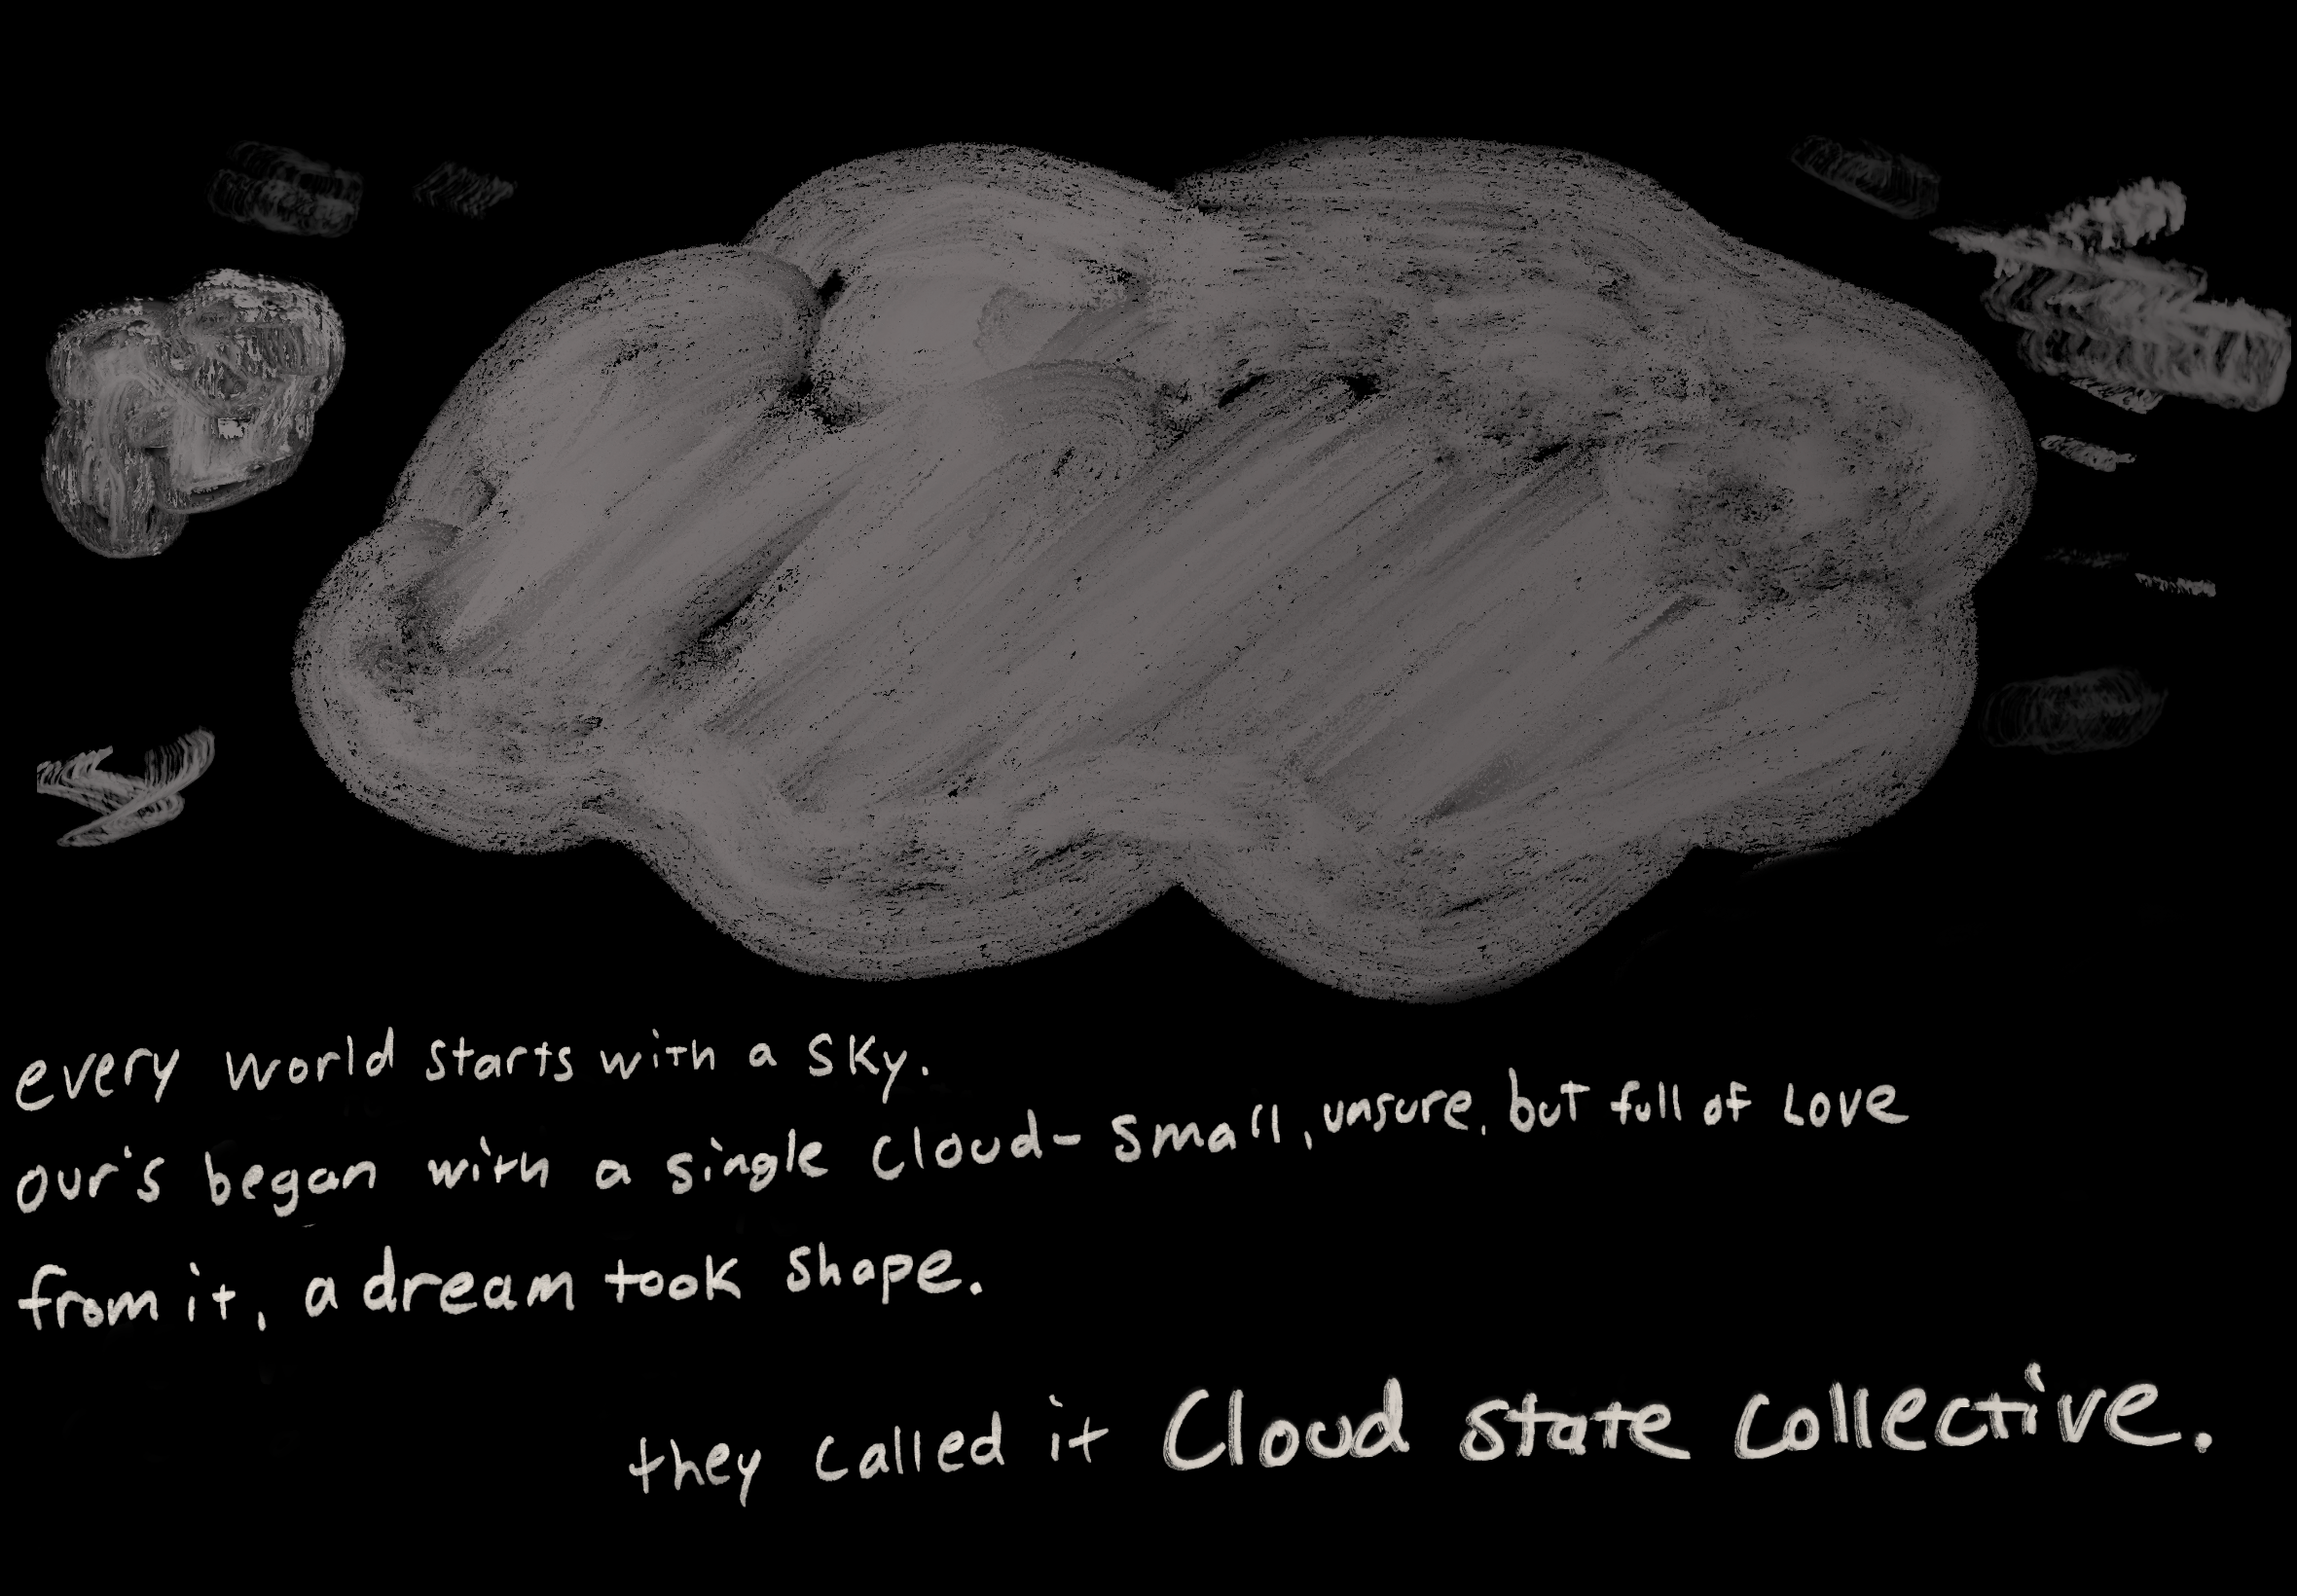 every world starts with a sky.
our's began with a single cloud- small, unsure, but full of love
from it, a dream took shape.
they called it Cloud state collective.